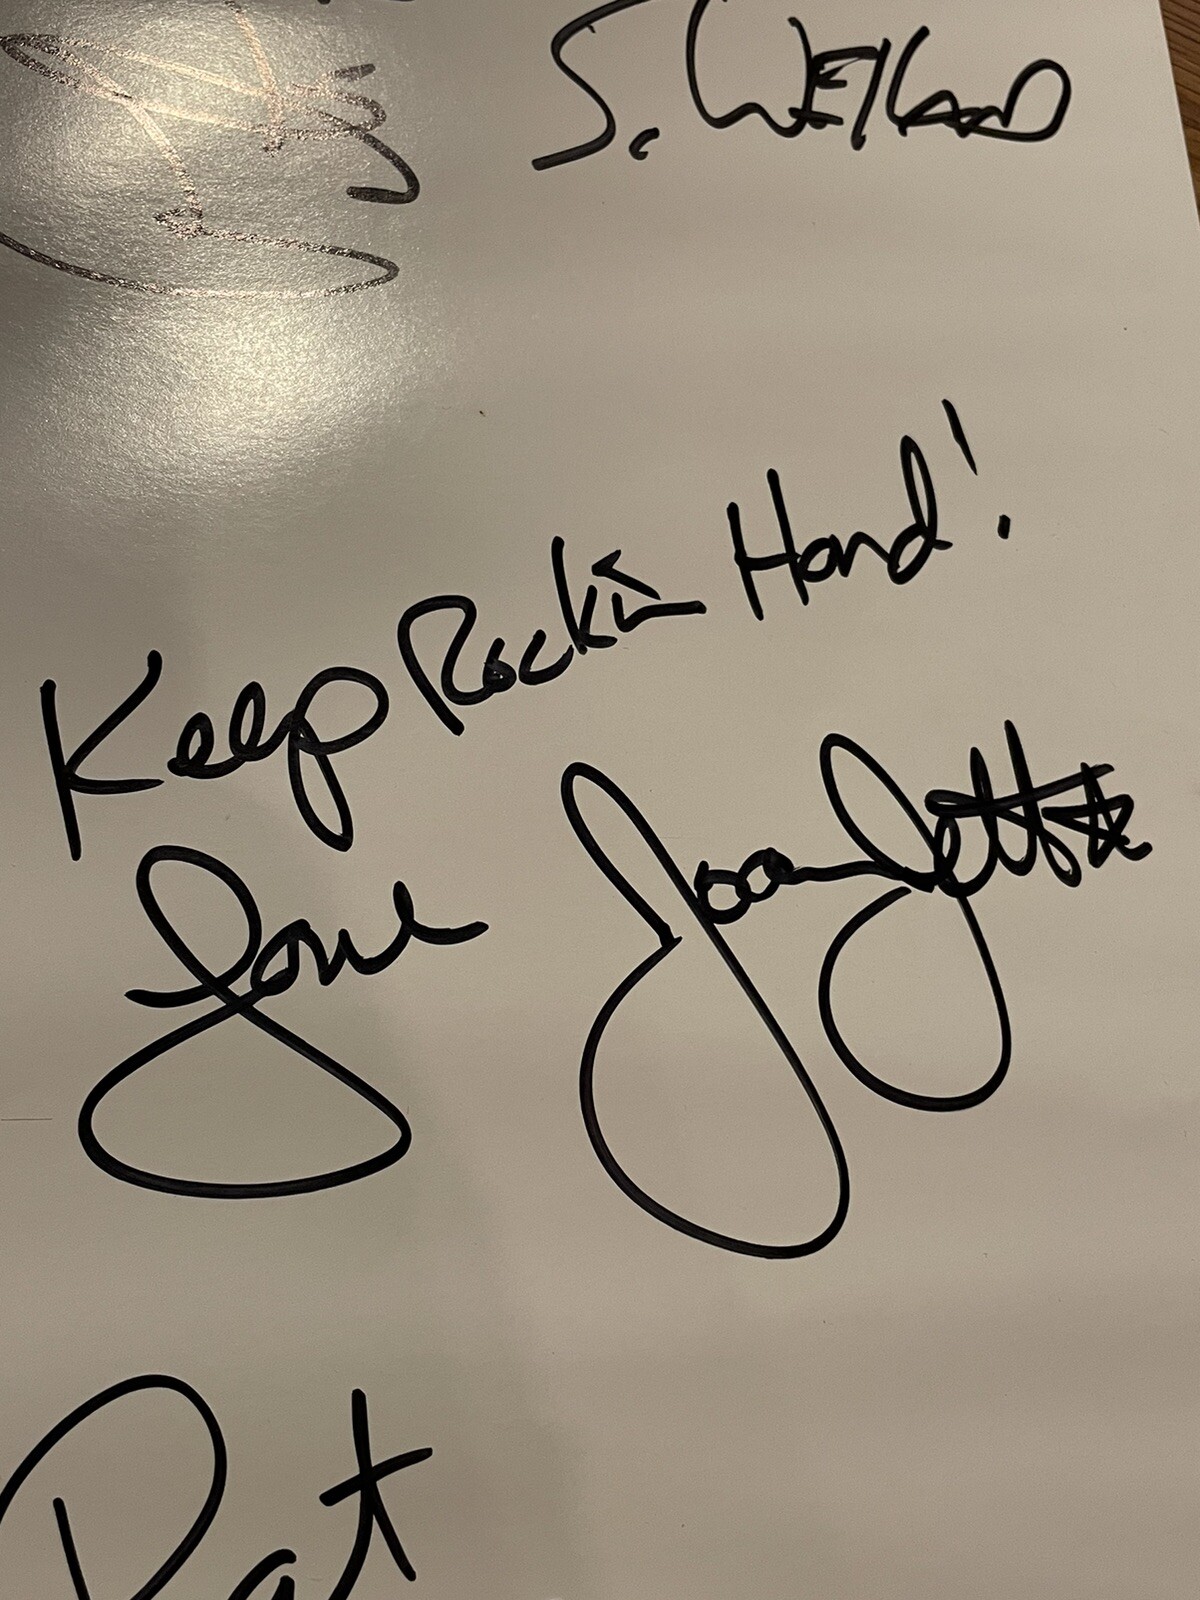 S. WEILAND
Keep Rockin Hard!
Love
Joan Jett
Pat